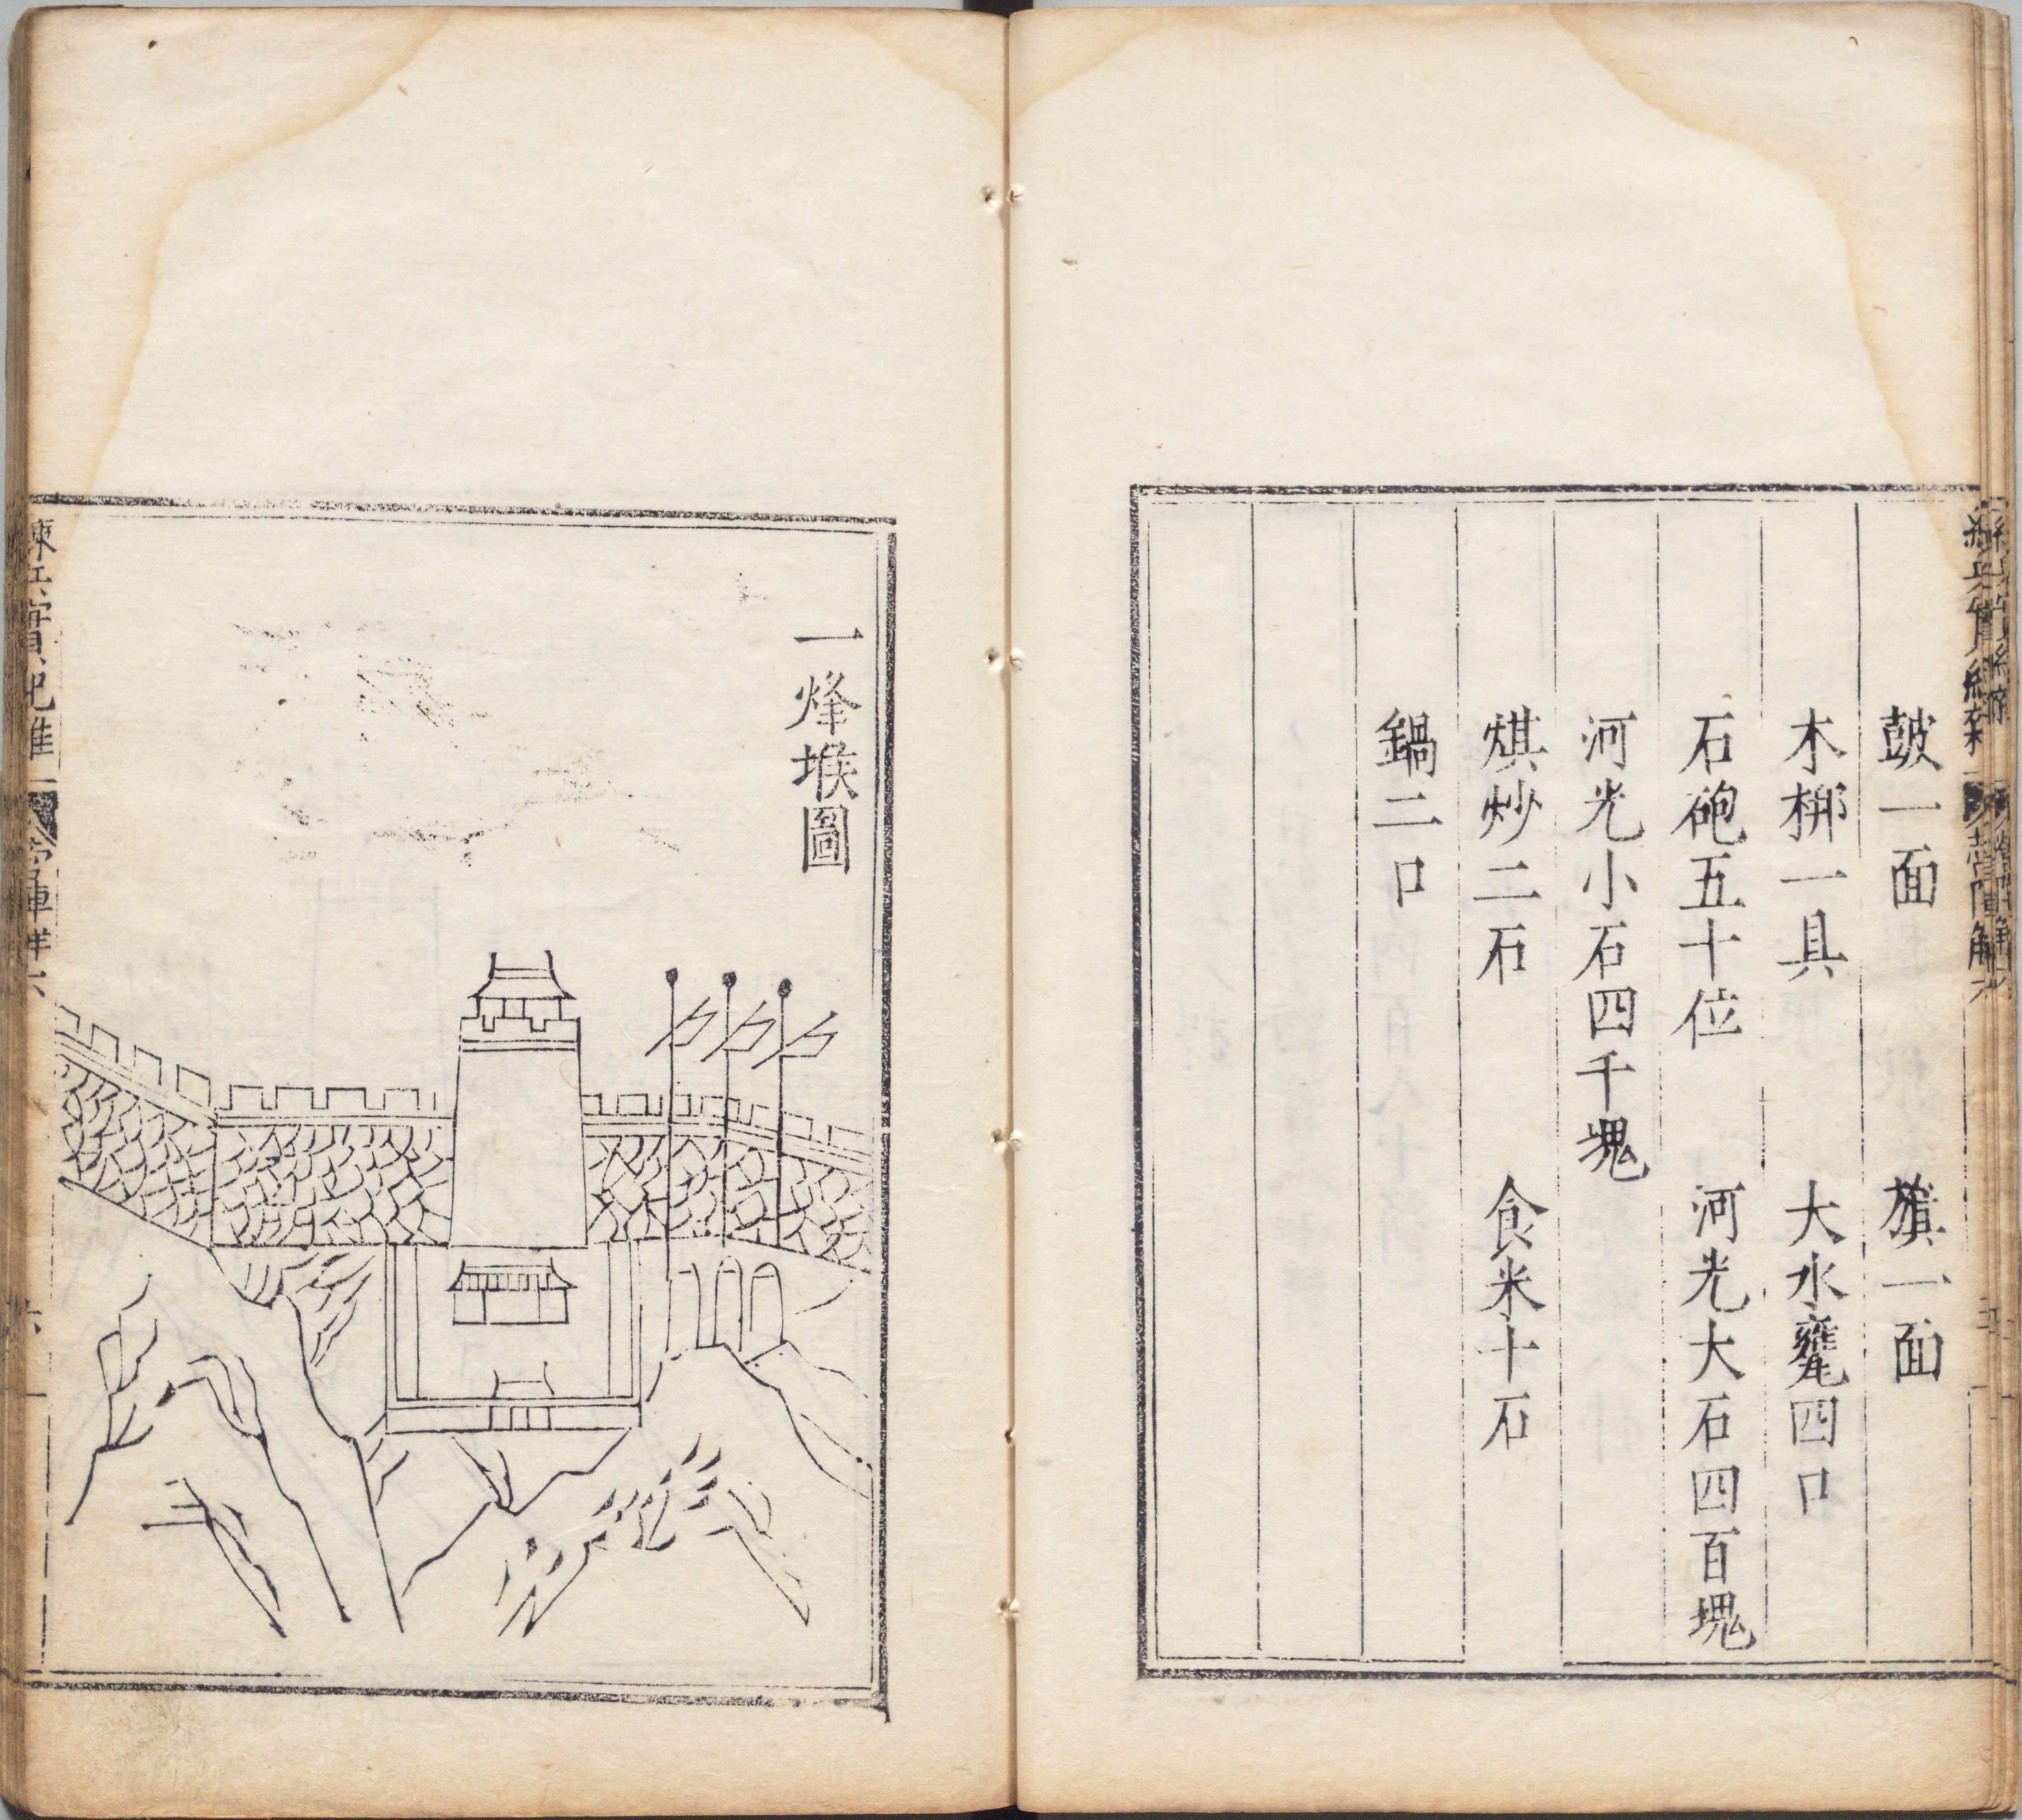 鼓一面 旗一面
木梆一具 大水甕四口
石砲五十位 河光大石四百塊
河光小石四千塊
煤炒二石 食米十石
鍋二口
一烽堠圖